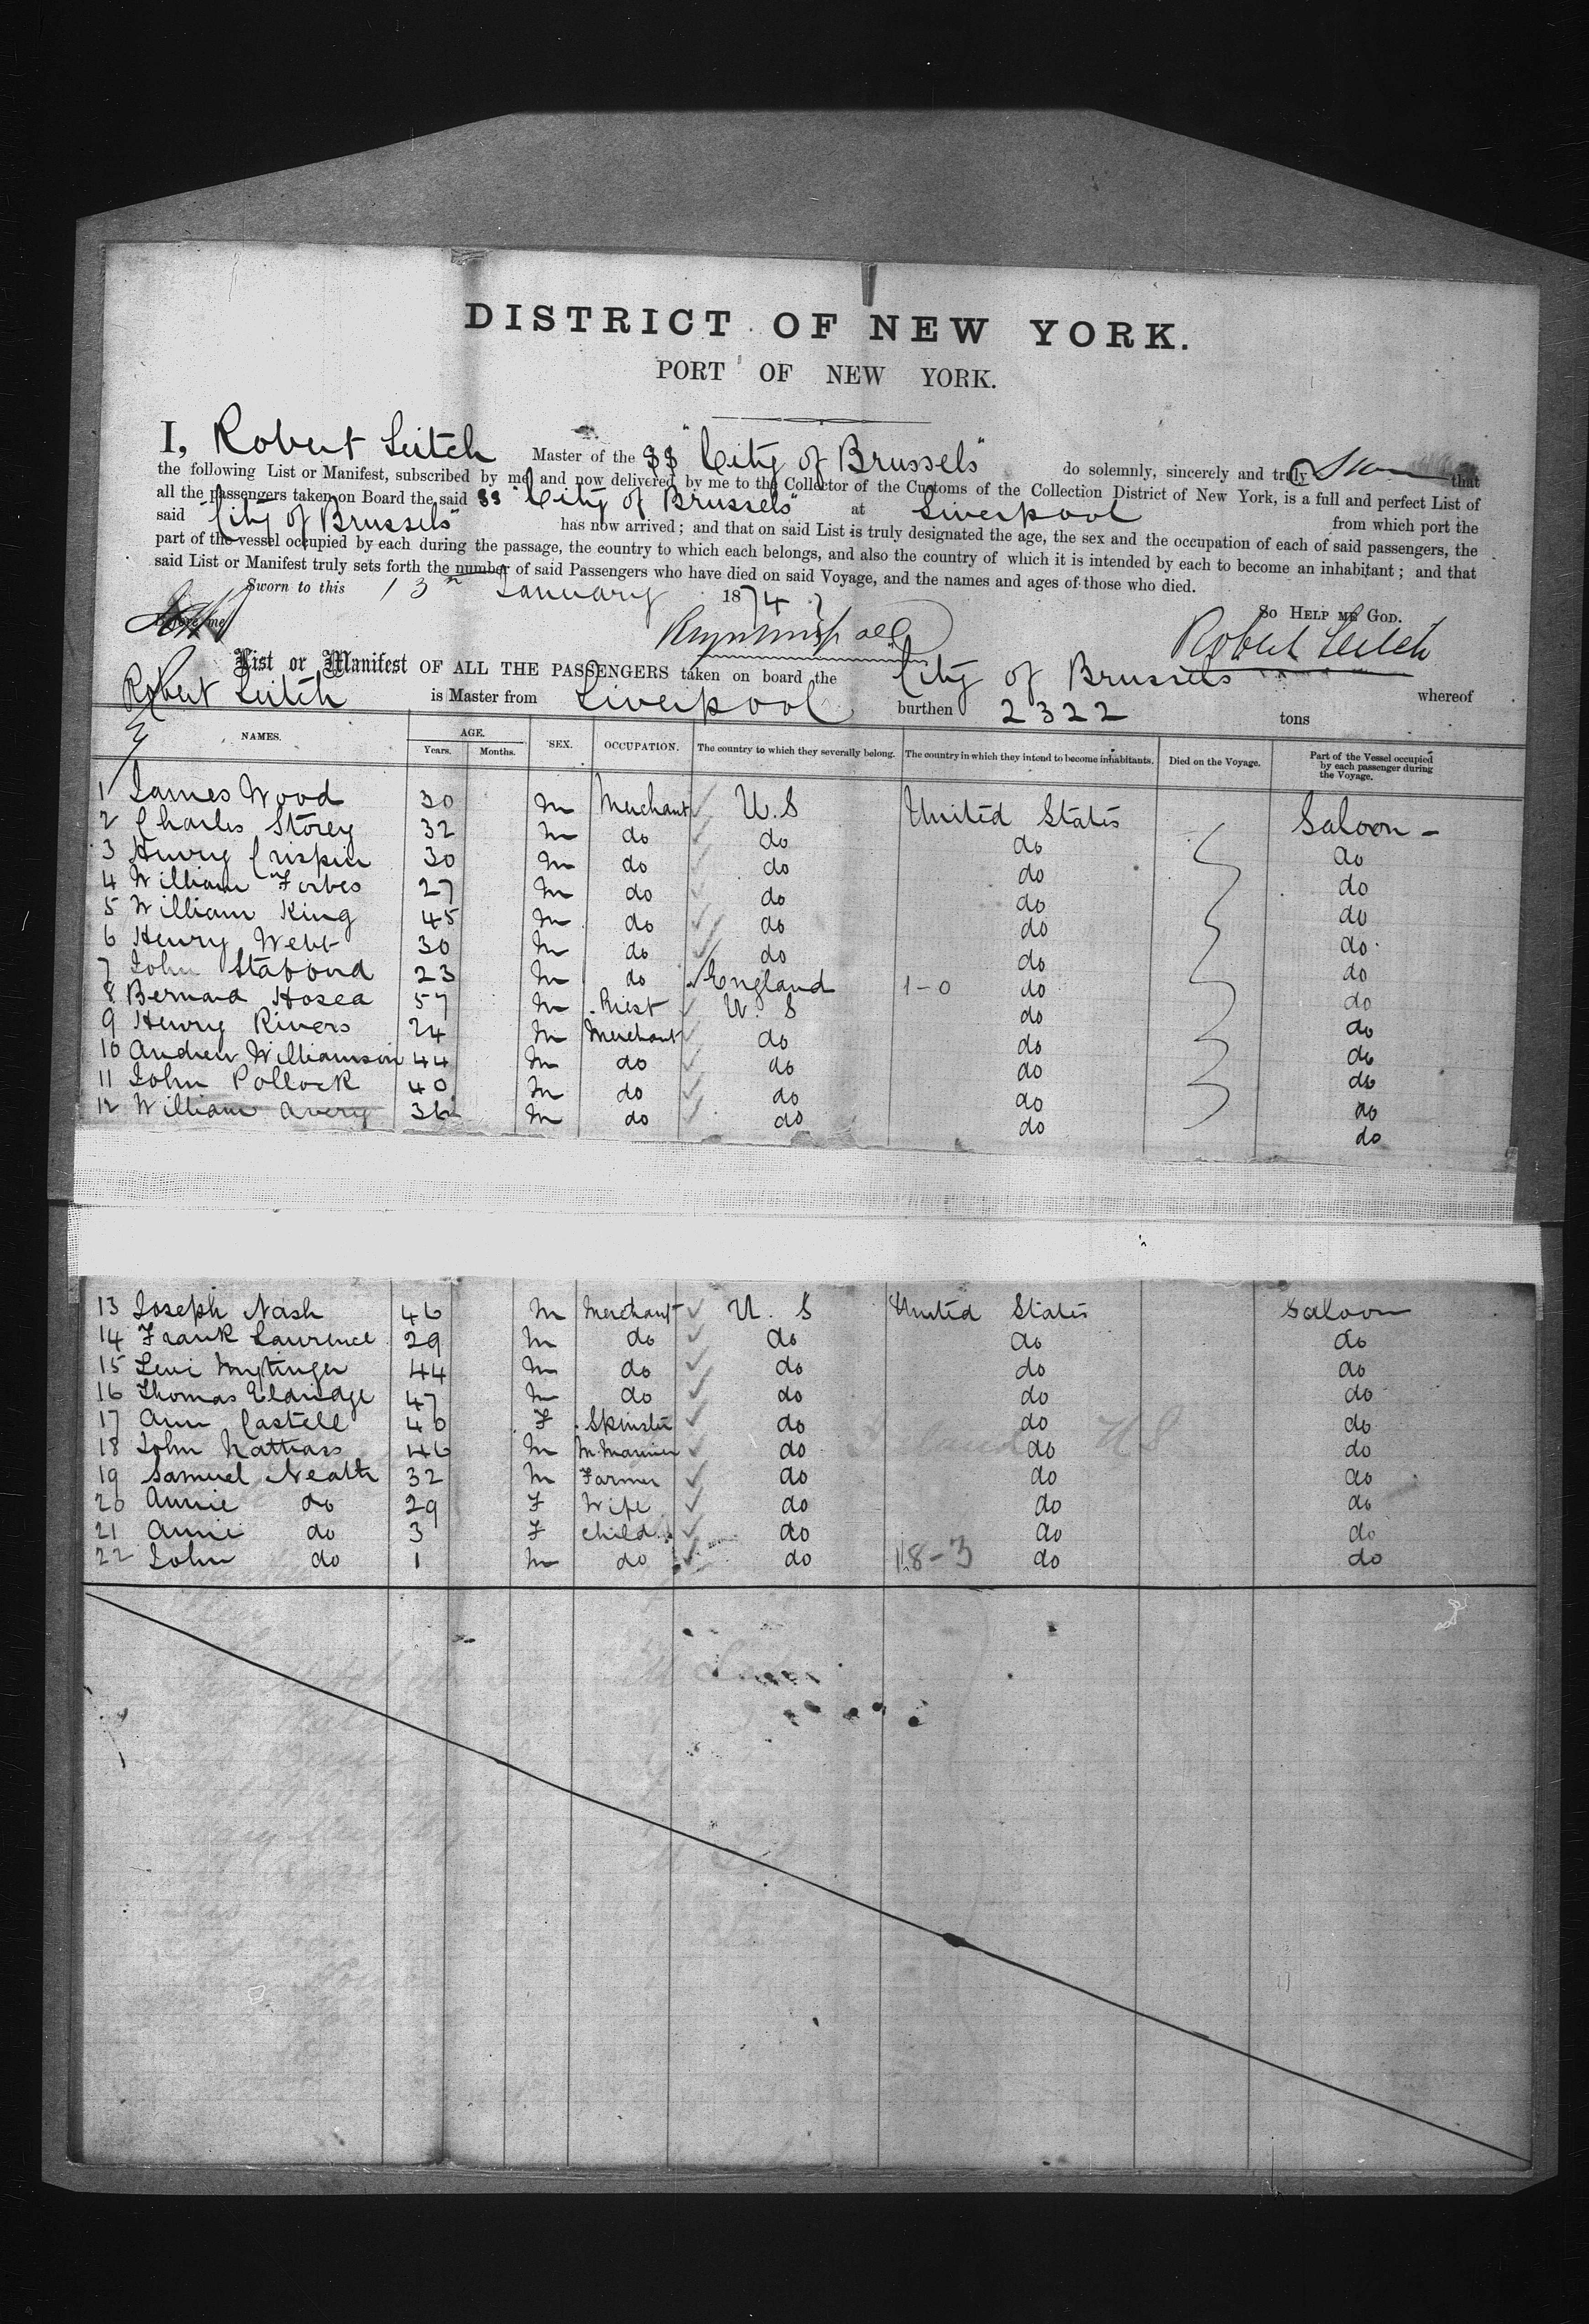 DISTRICT OF NEW YORK.
PORT OF NEW YORK.
I, Robert Leitch Master of the SS "City of Brussels" do solemnly, sincerely and truly that
the following List or Manifest, subscribed by me and now delivered by me to the Collector of the Customs of the Collection District of New York, is a full and perfect List of
all the passengers taken on Board the said SS "City of Brussels" at Liverpool from which port the
said "City of Brussels" has now arrived; and that on said List is truly designated the age, the sex and the occupation of each of said passengers, the
part of the vessel occupied by each during the passage, the country to which each belongs, and also the country of which it is intended by each to become an inhabitant; and that
said List or Manifest truly sets forth the number of said Passengers who have died on said Voyage, and the names and ages of those who died.
Sworn to this 13th January 1874
So HELP ME GOD.
Before me
Robert Leitch
List or Manifest OF ALL THE PASSENGERS taken on board the City of Brussels whereof
Robert Leitch is Master from Liverpool burthen 2322 tons
NAMES. AGE. Years. Months. SEX. OCCUPATION. The country to which they severally belong. The country in which they intend to become inhabitants. Died on the Voyage. Part of the Vessel occupied by each passenger during the Voyage.
1 James Wood 30 M Merchant U.S United States Saloon -
2 Charles Storey 32 M do do do do
3 Henry Crispin 30 M do do do do
4 William Forbes 27 M do do do do
5 William King 45 M do do do do
6 Henry Webb 30 M do do do do
7 John Stafford 23 M do England 1-0 do do
8 Bernard Hosea 57 M Priest U.S do do
9 Henry Rivers 24 M Merchant do do do
10 Andrew Williamson 44 M do do do do
11 John Pollock 40 M do do do do
12 William Avery 36 M do do do do
13 Joseph Nash 46 M Merchant U.S United States Saloon
14 Frank Lawrence 29 M do do do do
15 Levi Mytinger 44 M do do do do
16 Thomas Eldridge 47 M do do do do
17 Ann Castell 40 F Spinster do do do
18 John Nattrass 46 M M. Mariner do do do
19 Samuel Neath 32 M Farmer do do do
20 Annie do 29 F Wife do do do
21 Annie do 3 F Child do do do
22 John do 1 M do do 18-3 do do